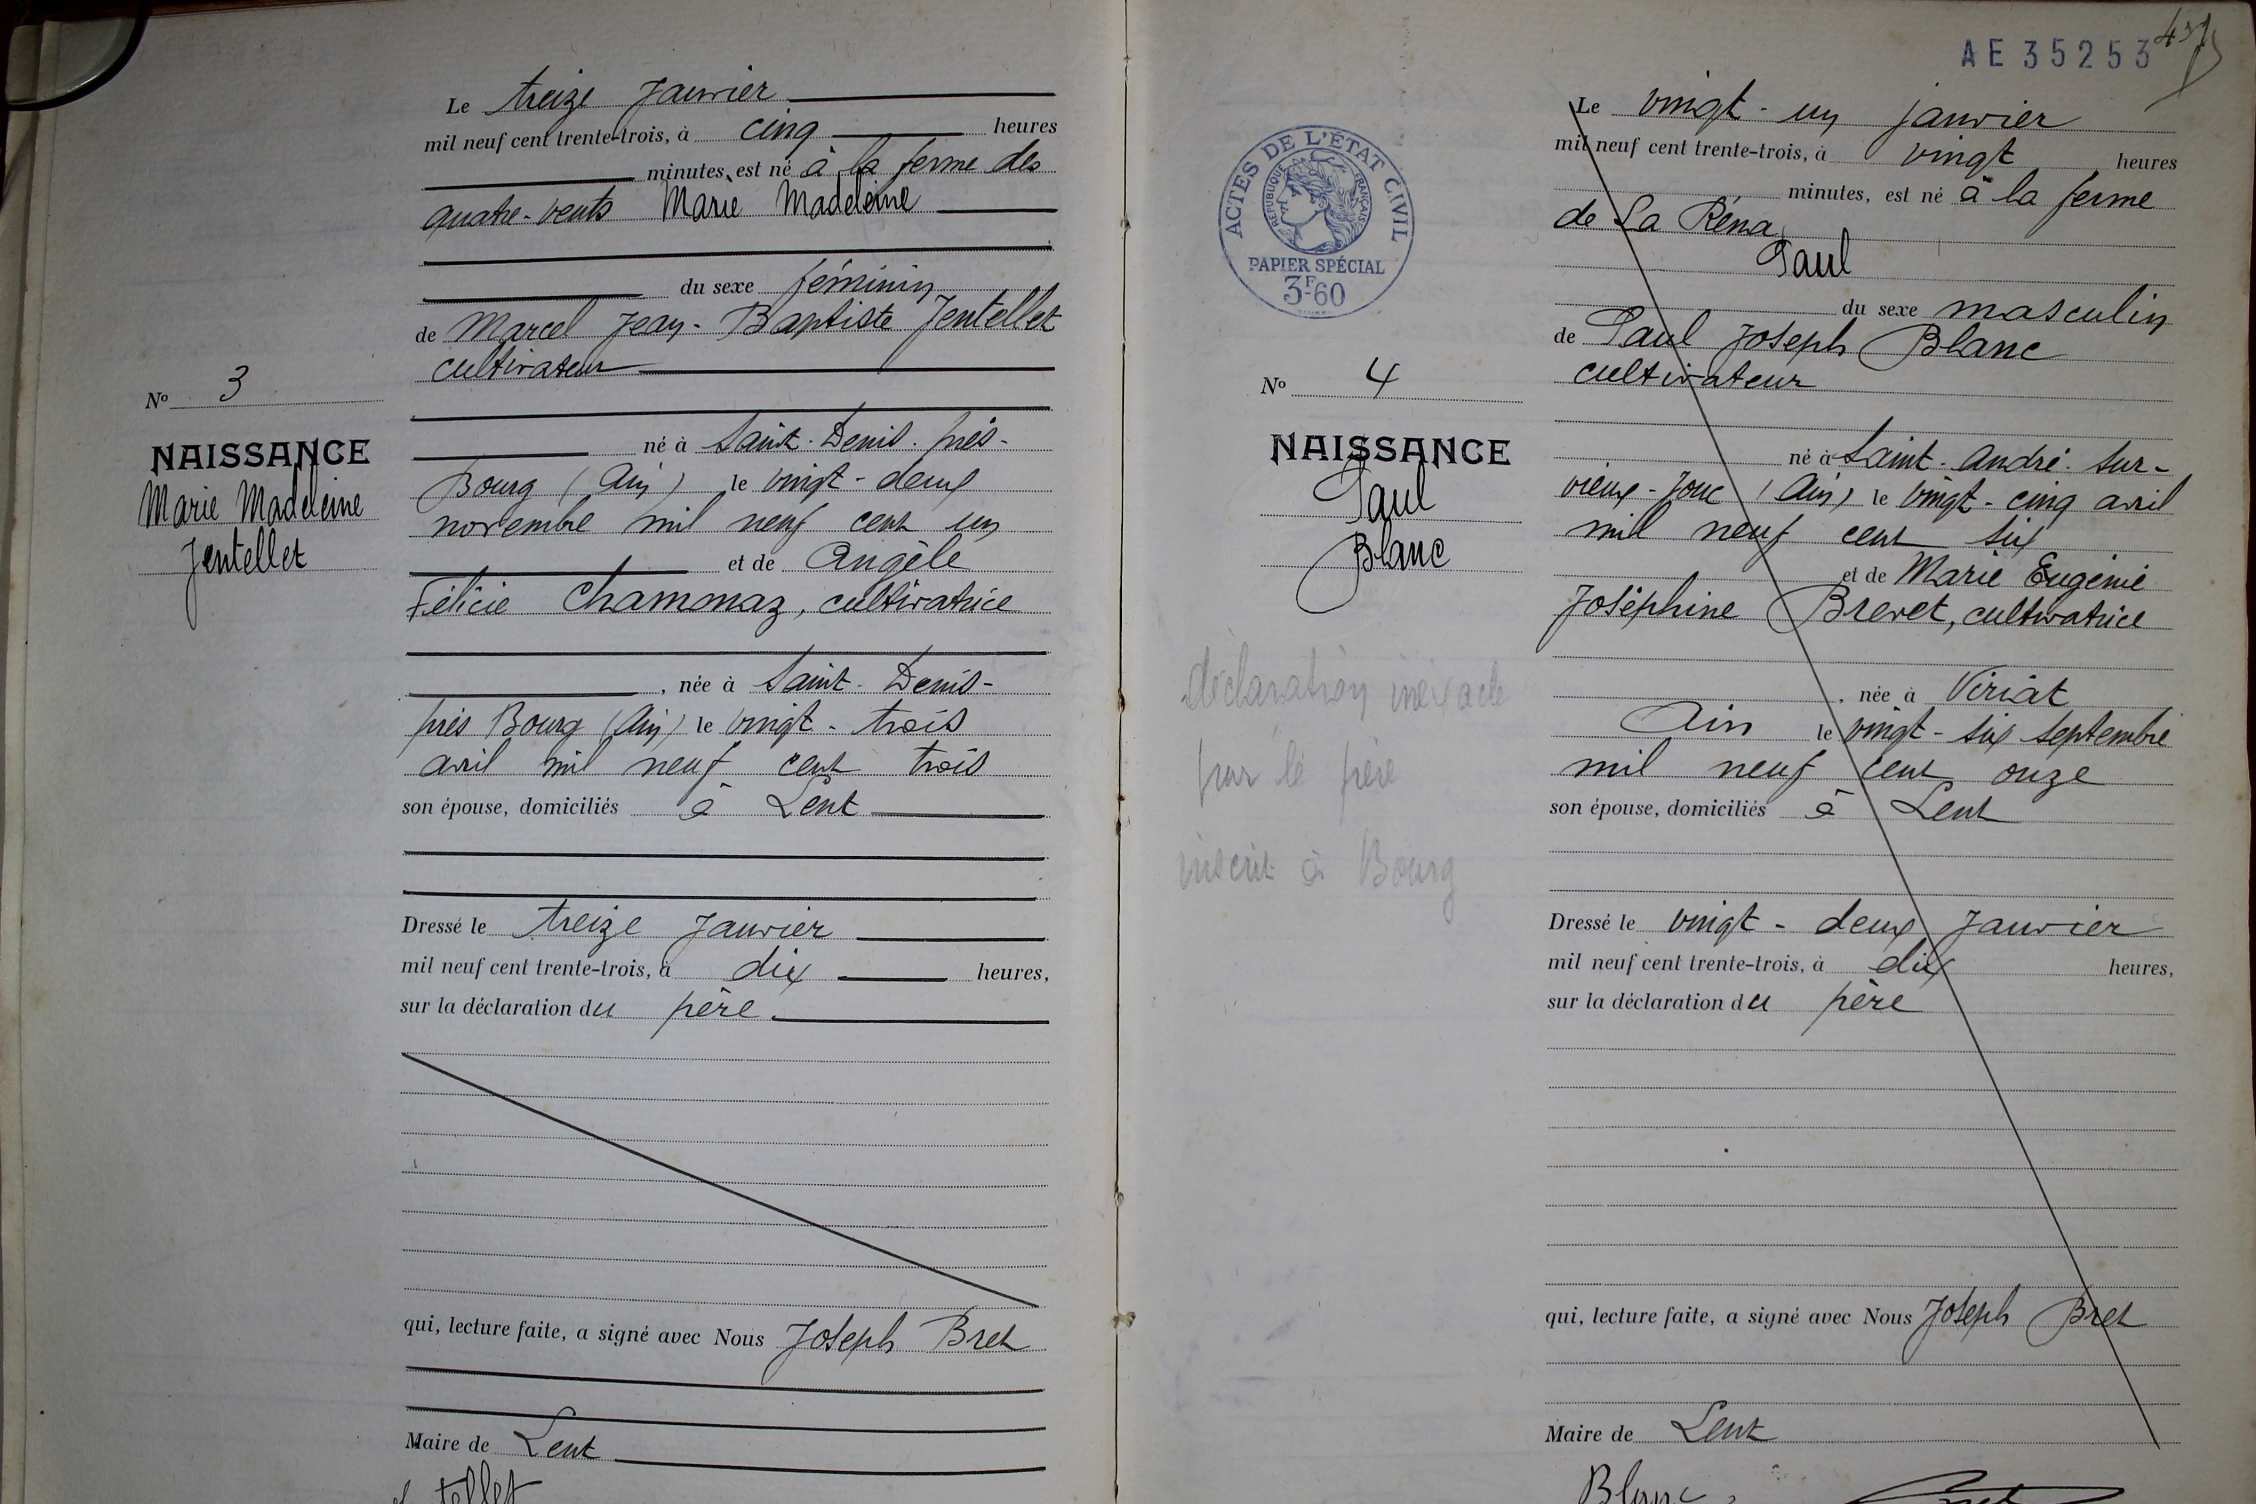 Le treize Janvier
mil neuf cent trente-trois, à cinq heures
minutes, est né à la ferme des
quatre-vents Marie Madeleine
du sexe féminin
de Marcel Jean-Baptiste Jentellet
cultivateur
né à Saint-Denis-près-
Bourg (Ain) le vingt-deux
novembre mil neuf cent un
et de Angèle
Félicie Chamonaz, cultivatrice
, née à Saint-Denis-
près Bourg (Ain) le vingt-trois
avril mil neuf cent trois
son épouse, domiciliés à Lent
Dressé le treize Janvier
mil neuf cent trente-trois, à dix heures,
sur la déclaration du père.
qui, lecture faite, a signé avec Nous Joseph Bret
Maire de Lent
No 3
NAISSANCE
Marie Madeleine
Jentellet
AE 35253
ACTES DE L'ÉTAT CIVIL
RÉPUBLIQUE FRANÇAISE
PAPIER SPÉCIAL
3F60
No 4
NAISSANCE
Paul
Blanc
déclaration inexacte
par le père
inscrit à Bourg
Le vingt-un janvier
mil neuf cent trente-trois, à vingt heures
minutes, est né à la ferme
de La Réna
Paul
du sexe masculin
de Paul Joseph Blanc
cultivateur
né à Saint-André-sur-
vieux-Jonc (Ain) le vingt-cinq avril
mil neuf cent six
et de Marie Eugénie
Joséphine Brevet, cultivatrice
, née à Viriat
Ain le vingt-six septembre
mil neuf cent onze
son épouse, domiciliés à Lent
Dressé le vingt-deux Janvier
mil neuf cent trente-trois, à dix heures,
sur la déclaration du père
qui, lecture faite, a signé avec Nous Joseph Bret
Maire de Lent
Blanc